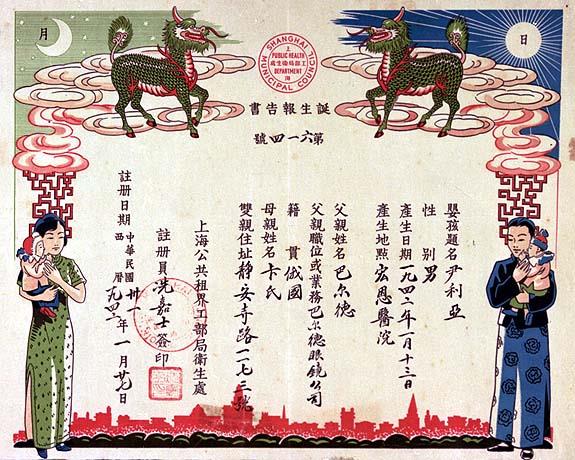 日
月
SHANGHAI MUNICIPAL COUNCIL
上海
PUBLIC HEALTH
工部局衛生處
DEPARTMENT
誕生報告書
第六一四號
嬰孩題名 尹利亞
性別 男
產生日期 一九四二年一月十三日
產生地點 宏恩醫院
父親姓名 巴尔德
父親職位或業務 巴尔德眼鏡公司
籍貫 俄國
母親姓名 卞氏
雙親住址 靜安寺路一七三號
上海公共租界工部局衛生處
註册員 冼嘉士 簽印
註册日期 中華民國卅一 西曆一九四二 年一月廿七日